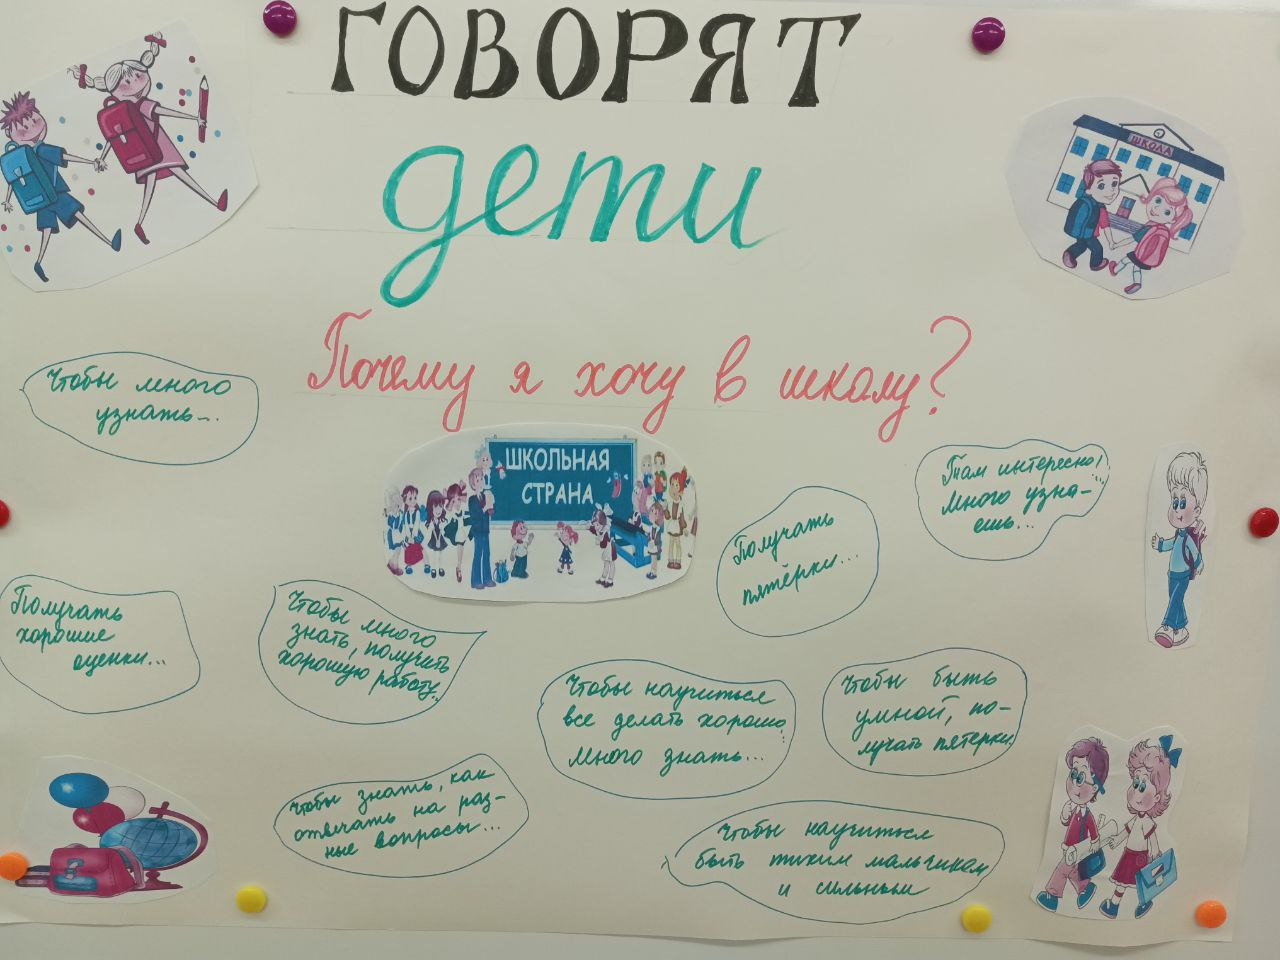 ГОВОРЯТ
дети
Почему я хочу в школу?
ШКОЛА
Чтобы много
узнать...
ШКОЛЬНАЯ
СТРАНА
Там интересно!
Много узна-
ешь...
Получать
пятёрки...
Получать
хорошие
оценки...
Чтобы много
знать, получить
хорошую работу...
Чтобы научиться
все делать хорошо,
много знать...
Чтобы быть
умной, по-
лучать пятерки.
Чтобы знать, как
отвечать на раз-
ные вопросы...
Чтобы научиться
быть тихим мальчиком
и сильным